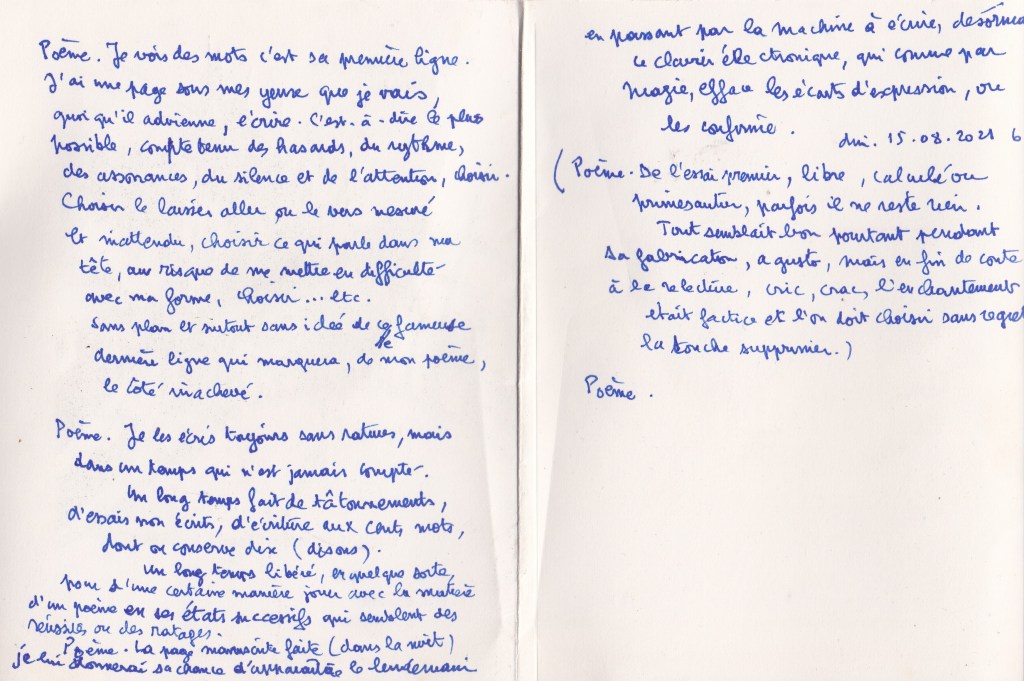 Poème. Je vois des mots c'est sa première ligne.
J'ai une page sous mes yeux que je vais,
quoi qu'il advienne, écrire. C'est-à-dire le plus
possible, compte tenu des hasards, du rythme,
des assonances, du silence et de l'attention, choisir.
Choisir le laisser aller ou le vers mesuré
et inattendu, choisir ce qui parle dans ma
tête, au risque de me mettre en difficulté
avec ma forme, choisir... etc.
Sans plan et surtout sans idée de ce fameuse
dernière ligne qui marquera, de mon poème,
le côté inachevé.
Poème. Je les écris toujours sans ratures, mais
dans un temps qui n'est jamais compté.
Un long temps fait de tâtonnements,
d'essais non écrits, d'écriture aux cents mots,
dont on conserve dix (disons).
Un long temps libéré, en quelque sorte,
pour d'une certaine manière jouer avec la matière
d'un poème en ses états successifs qui semblent des
réussites ou des ratages.
Poème. La page manuscrite faite (dans la nuit)
je lui donnerai sa chance d'apparaître le lendemain
en passant par la machine à écrire, désorma
ce clavier électronique, qui comme par
magie, efface les écarts d'expression, ou
les confirme.
dim. 15.08.2021 6
(Poème. De l'essai premier, libre, calculé ou
primesautier, parfois il ne reste rien.
Tout semblait bon pourtant pendant
sa fabrication, a gusto, mais en fin de conte
à la relecture, cric, crac, l'enchantement
était factice et l'on doit choisir sans regret
la touche supprimer.)
Poème.